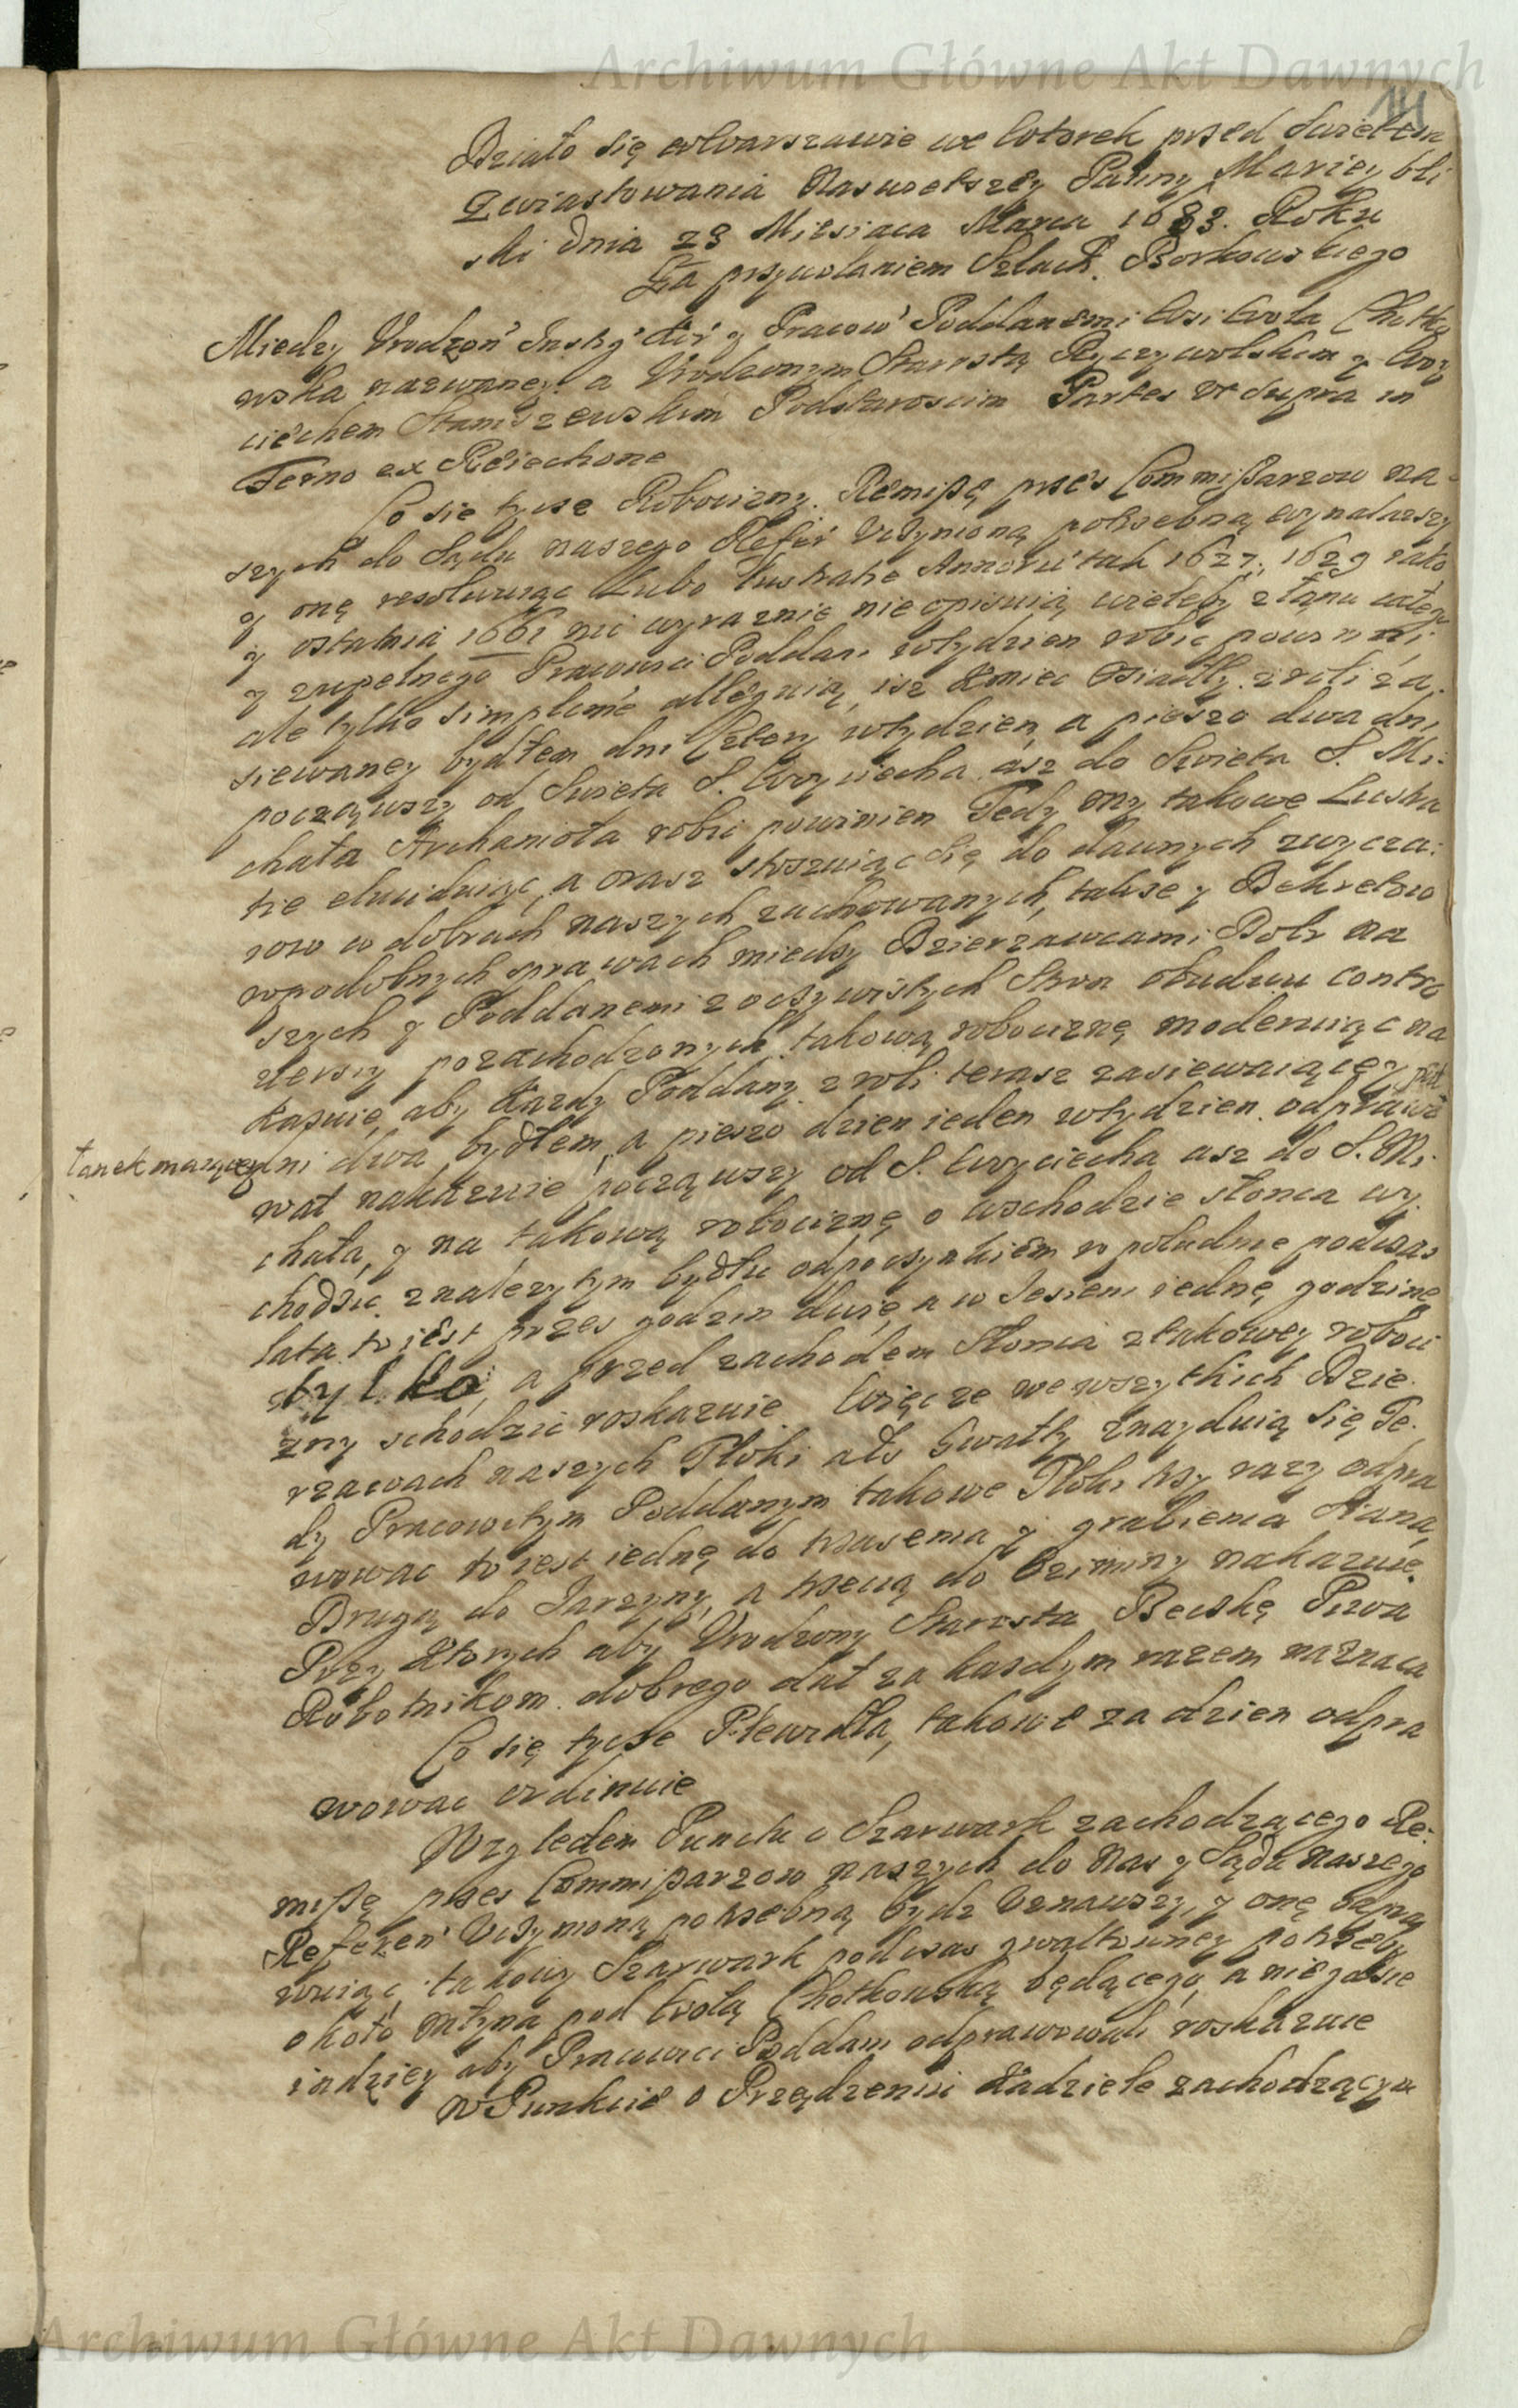 Archiwum Główne Akt Dawnych
141
Działo się w Warszawie we Wtorek przed Swietem
Zwiastowania Naswietszey Panny Mariey bli
ski dnia 23 Miesiaca Marca 1683. Roku
Za przywołaniem Szlach. Borkowskiego
Miedzy Urodzon Instyg i Pracow Poddanemi Wsi Wola Chotko
wska nazwaney a Urodzonym Starostą Ryczywolskim y Woy
ciechem Staniszewskim Podstaroscim Partes ut supra in
Termo ex
Co sie tycze Robocizny. Remissę przes Commissarzow na-
szych do Sądu naszego Uczynioną potrzebną wynalazszy
y onę resolwuiąc Lubo Lustratie Annorū tak 1627, 1629 iako
y ostatnia 1661 nic wyraznie nie opisuią wieleby z łanu całego
y zupełnego Pracowici Poddani w tydzien robic powinni,
ale tylko allegnią, isz Kmiec Osiadły z roli za-
siewaney bydłem dni Cztery w tydzien, a pieszo dwa dni
począwszy od Swieta S. Woyciecha asz do Swieta S. Mi-
chała Archanioła robic powinien Tedy my takowe Lustra
tie eluciduiąc, a orasz stosuiąc się do dawnych zwycza-
iow w dobrach naszych zachowanych, takze y Dekretow
w podobnych sprawach miedzy Dzierzawcami Dobr na
szych y Poddanemi z oczywistych Stron obudwu contro
wersiy pozachodzonych, takową robociznę moderuiąc na
kazuie, aby Kazdy Poddany z roli terasz zasiewaiącey puł
łanek maiącey dni dwa bydłem, a pieszo dzien ieden w tydzien odprawo
wał nakazuie począwszy od S. Woyciecha asz do S. Mi-
chała, y na takową robociznę o wschodzie słonca wy
chodzic z nalezytym bydłu odpoczynkiem w południe podczas
lata to iest przes godzin dwie, a w Jesieni iednę godzinę
tylko, a przed zachodem Słonca z takowey roboci
zny schodzic roskazuie. Więc ze we wszytkich Dzie-
rzawach naszych Tłoki abo Gwałty znayduią się Te-
dy Pracowitym Poddanym takowe Tłoki trzy razy odpra
wowac to iest iednę do trzasenia y grabienia Siana,
Drugą do Jarzyny, a trzecią do Oziminy nakazuie.
Przy Ktorych aby Urodzony Starosta Beczkę Piwa
Robotnikom dobrego dał za kazdym razem naznacza
Co się tycze Plewidła, takowe za dzien odpra
wowac ordinuie
Względem Punctu o Szarwark zachodzącego Re-
missę przes Commissarzow naszych do Nas y Sądu naszego
Referen Uczynioną potrzebną bydz Uznawszy, y onę
wuiąc takowy Szarwark podczas gwałtowney potrzeby
około młyna pod Wolą Chotkowską będącego, a nie gdzie
indziey aby Pracowici Poddani odprawowali roskazuie
W Punkcie o Przędzeniu Kądziele zachodzącym
Archiwum Główne Akt Dawnych